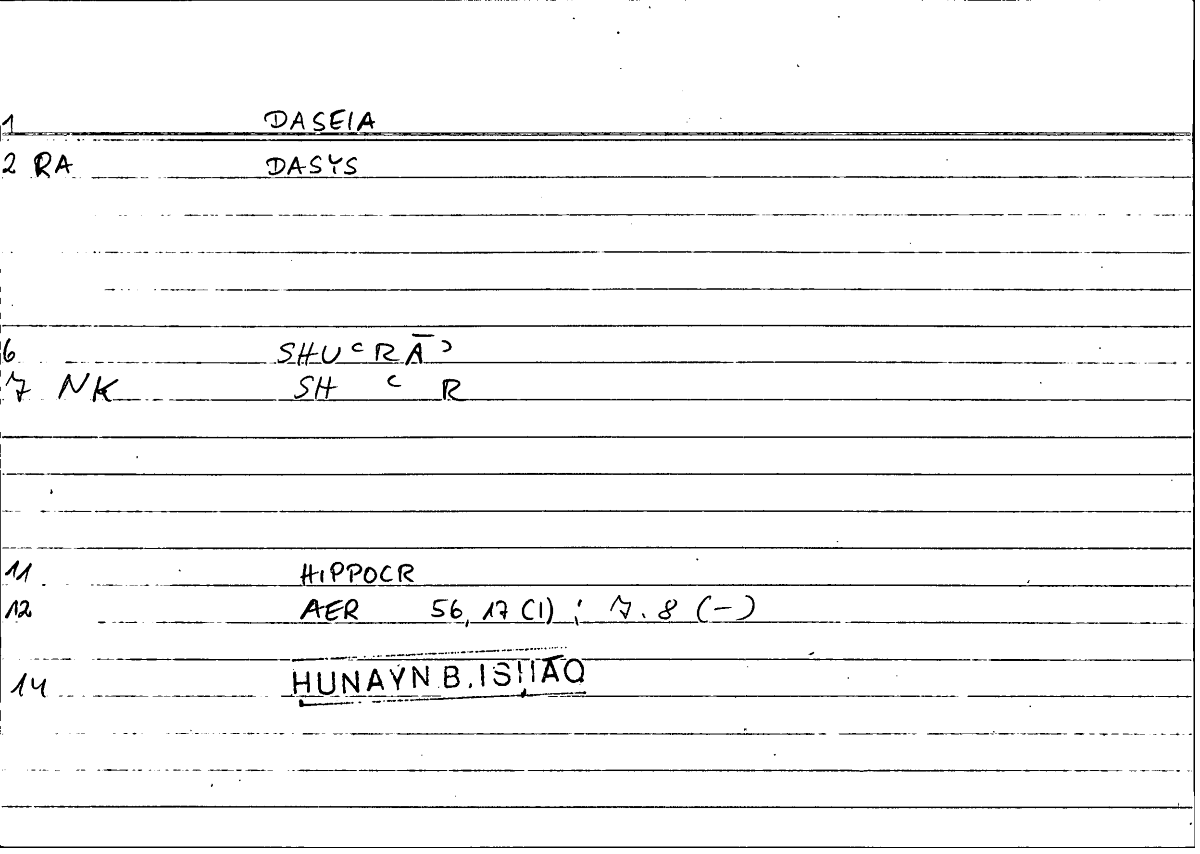 1 DASEIA
2 RA DASYS
6 SHUʿRĀʾ
7 NK SH ʿ R
11 HIPPOCR
12 AER 56, 17 (1) ; 7. 8 (-)
14 ḤUNAYN B. ISḤĀQ